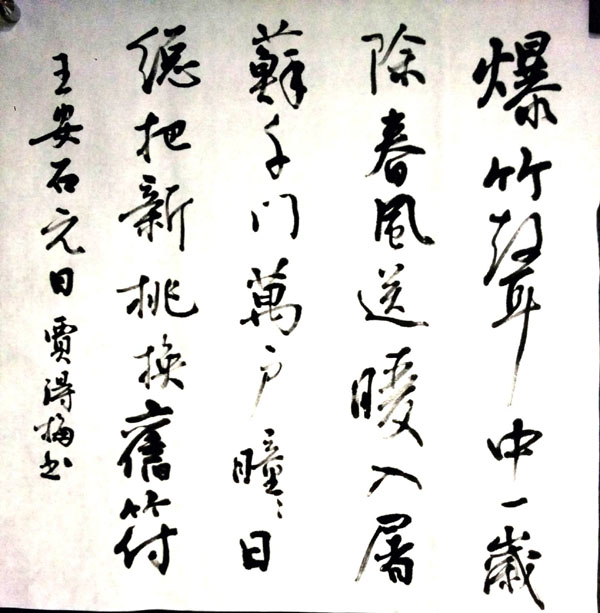 爆竹聲中一歲
除春風送暖入屠
蘇千门萬户瞳〻日
總把新桃換舊符
王安石元日賈得梅书